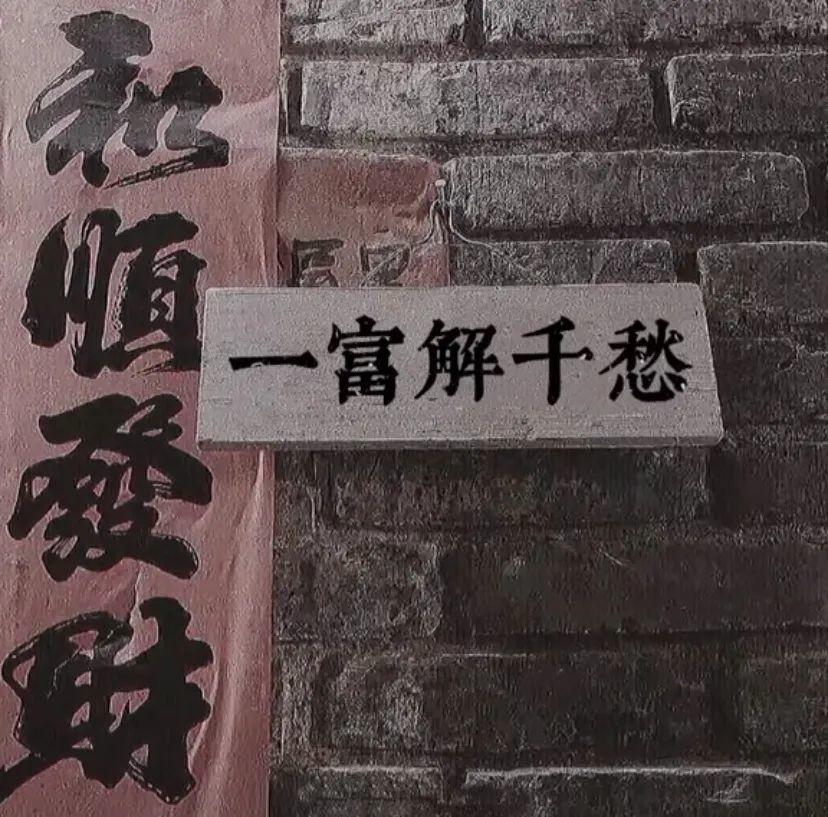 和順發財
一富解千愁